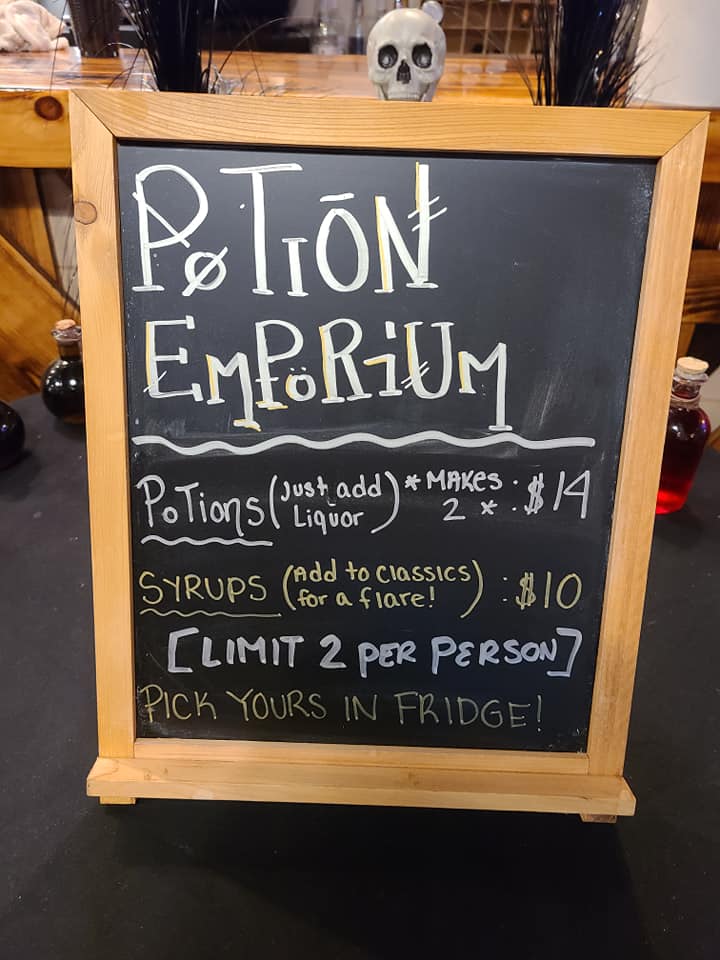 PøTIŌN
EMPöRiUM
PoTions (Just add Liquor) *MAKES 2 * : $14
SYRUPS (Add to classics for a flare!) : $10
[LIMIT 2 PER PERSON]
PICK YOURS IN FRIDGE!